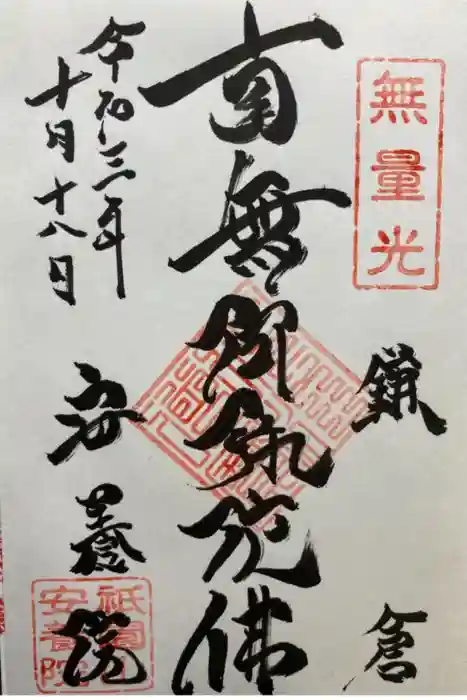 無量光
鎌倉
南無阿弥陀佛
令和三年
十月十八日
安養院
祇園山
安養院